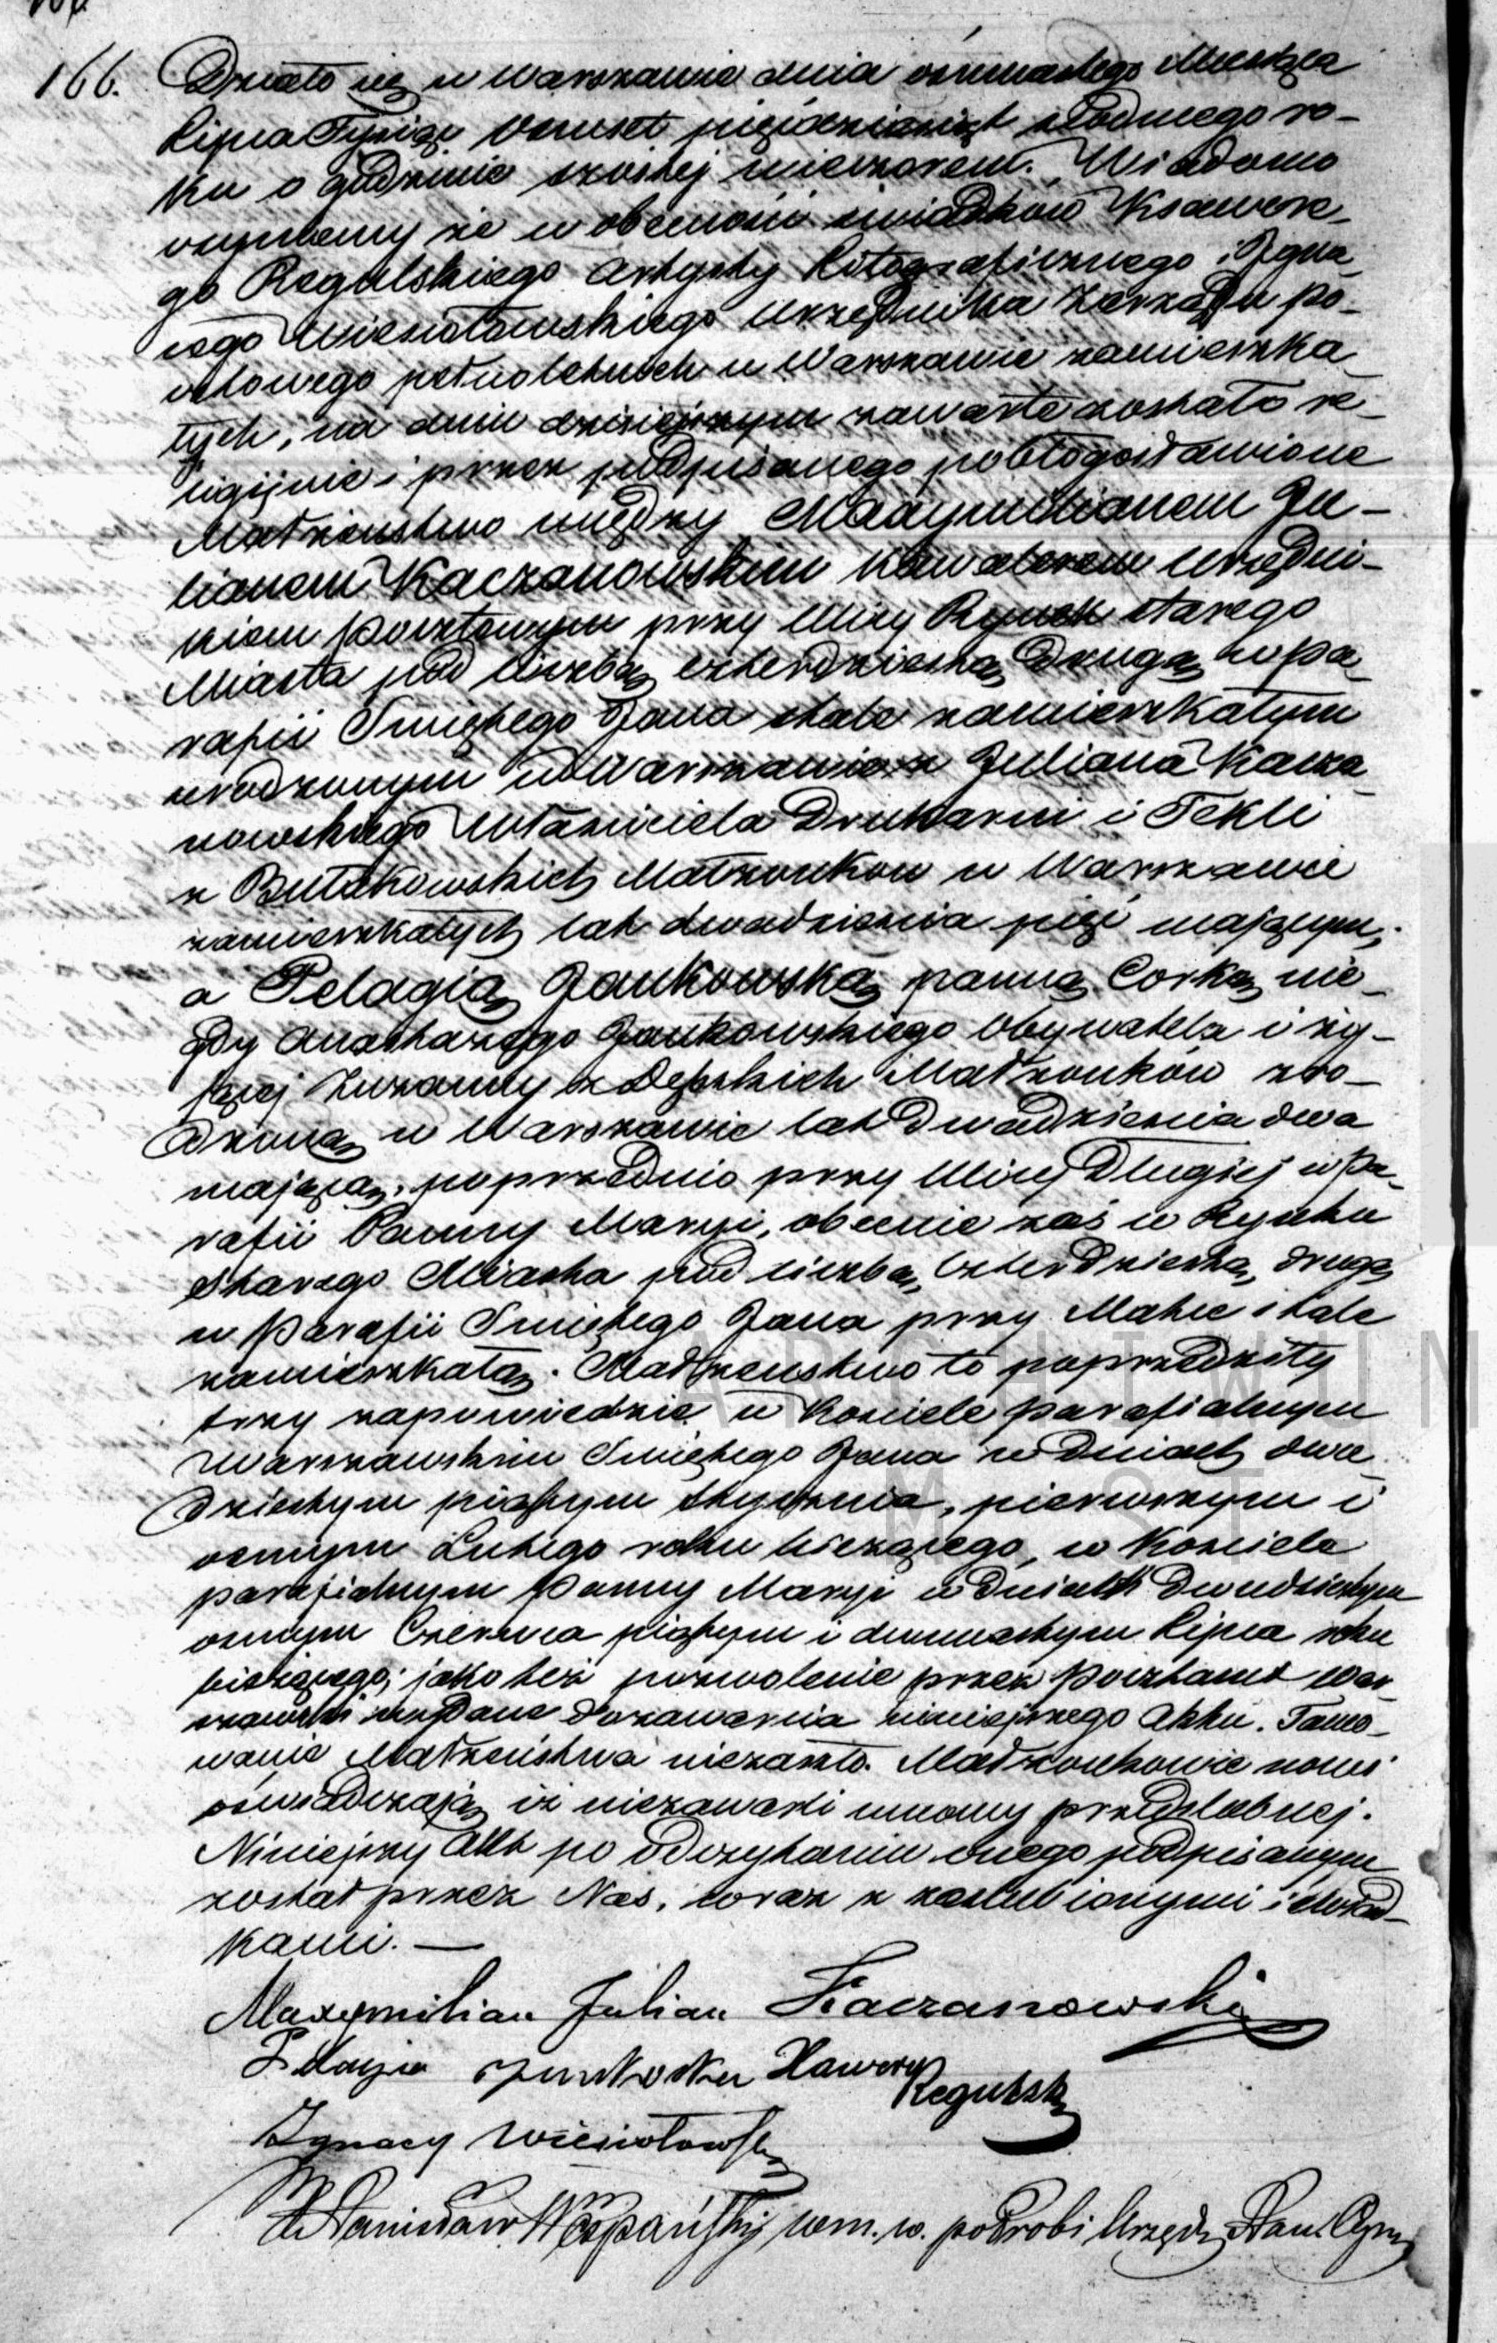 166. Działo się w Warszawie dnia ósmnastego Miesiąca
Lipca Tysiąc Ośmset pięćdziesiąt siódmego ro-
ku o godzinie szóstej wieczorem. Wiadomo
czyniemy że w obecności świadków Ksawere-
go Regulskiego Artysty Litograficznego i Igna-
cego Wiesiołowskiego Urzędnika Zarządu po-
cztowego pełnoletnich w Warszawie zamieszka-
łych, na dniu dzisiejszym zawarte zostało re-
ligijnie i przez podpisanego pobłogosławione
Małżeństwo między Maxymilianem Ju-
lianem Kaczanowskim kawalerem Urzędni-
kiem pocztowym przy Ulicy Rynek starego
Miasta pod liczbą czterdziestą drugą w pa-
rafii Świętego Jana stale zamieszkałym
urodzonym w Warszawie z Juliana Kacza-
nowskiego Właściciela Drukarni i Tekli
z Bułakowskich Małżonków w Warszawie
zamieszkałych lat dwadzieścia pięć mającym;
a Pelagią Jankowską panną Córką nie-
gdy Anastazego Jankowskiego Obywatela i ży-
jącej Zuzanny z Dębskich Małżonków zro-
dzoną w Warszawie lat Dwadzieścia dwa
mającą, poprzednio przy Ulicy Długiej w Pa-
rafii Panny Maryi, obecnie zaś w Rynku
Starego Miasta pod liczbą Czterdziestą drugą
w Parafii Świętego Jana przy Matce stale
zamieszkałą. Małżeństwo to poprzedziły
trzy zapowiedzie w Kościele parafialnym
Warszawskim Świętego Jana w Dniach dwu-
dziestym piątym Stycznia, pierwszym i
ósmym Lutego roku bieżącego, w Kościele
parafialnym Panny Maryi w Dniach Dwudziestym
ósmym Czerwca piątym i dwunastym Lipca roku
bieżącego; jako też pozwolenie przez Pocztamt War-
szawski wydane do zawarcia niniejszego Aktu. Tamo-
wanie Małżeństwa niezaszło. Małżonkowie nowi
oświadczają iż niezawarli umowy przedślubnej.
Niniejszy Akt po odczytaniu onego podpisanym
został przez Nas, wraz z zaślubionymi i świad-
kami. —
Maxymilian Julian Kaczanowski
Pelagia Jankoska Xawery Regulski
Ignacy Wiesiołowski
X Stanisław